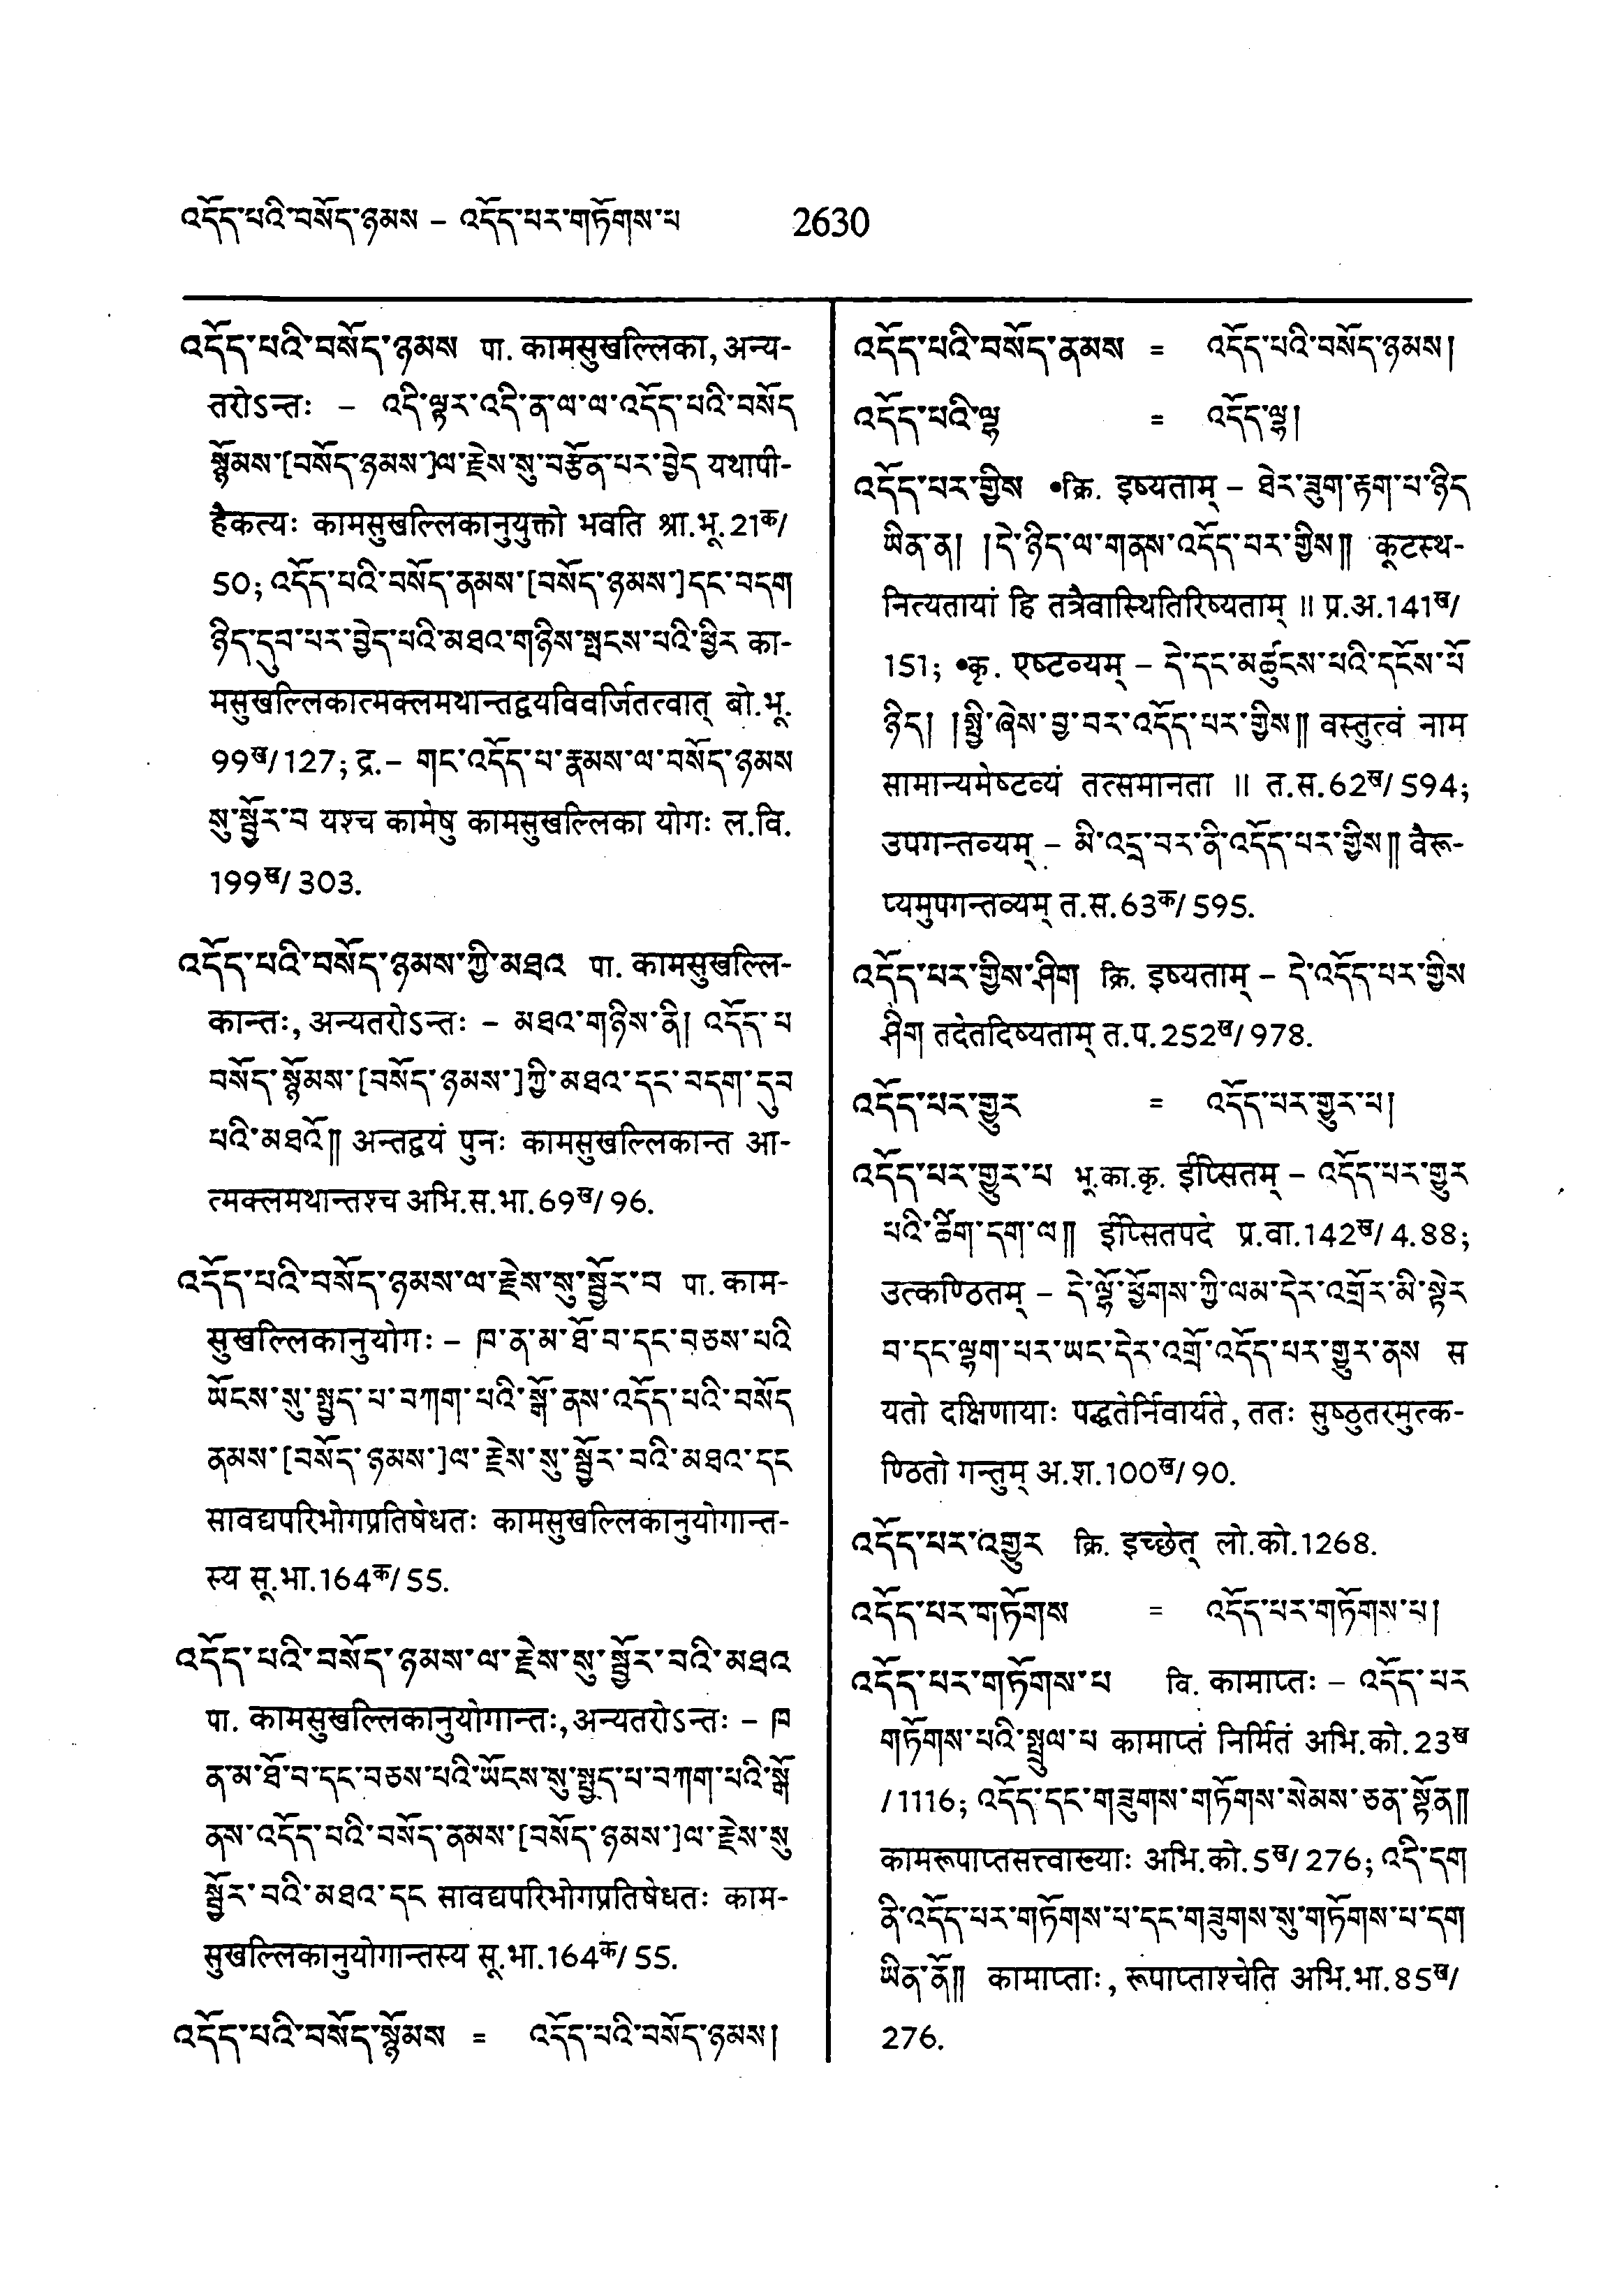 འདོད་པའི་བསོད་ཉམས – འདོད་པར་གཏོགས་པ 2630
འདོད་པའི་བསོད་ཉམས པा. कामसुखल्लिका, अन्य-
तरोऽन्तः – འདི་ལྟར་འདི་ན་ལ་ལ་འདོད་པའི་བསོད
སྙོམས་[བསོད་ཉམས་]ལ་རྗེས་སུ་བརྩོན་པར་བྱེད यथापी-
हैकत्यः कामसुखल्लिकानुयुक्तो भवति श्रा.भू.21क/
50; འདོད་པའི་བསོད་ནམས་[བསོད་ཉམས་]དང་བདག
ཉིད་དུབ་པར་བྱེད་པའི་མཐའ་གཉིས་སྤངས་པའི་ཕྱིར का-
मसुखल्लिकात्मक्लमथान्तद्वयविवर्जितत्वात् बो.भू.
99ख/127; द्र.– གང་འདོད་པ་རྣམས་ལ་བསོད་ཉམས
སུ་སྦྱོར་བ यश्च कामेषु कामसुखल्लिका योगः ल.वि.
199ख/303.
འདོད་པའི་བསོད་ཉམས་ཀྱི་མཐའ पा. कामसुखल्लि-
कान्तः, अन्यतरोऽन्तः – མཐའ་གཉིས་ནི། འདོད་པ
བསོད་སྙོམས་[བསོད་ཉམས་]ཀྱི་མཐའ་དང་བདག་དུབ
པའི་མཐའོ༎ अन्तद्वयं पुनः कामसुखल्लिकान्त आ-
त्मक्लमथान्तश्च अभि.स.भा.69ख/96.
འདོད་པའི་བསོད་ཉམས་ལ་རྗེས་སུ་སྦྱོར་བ पा. काम-
सुखल्लिकानुयोगः – ཁ་ན་མ་ཐོ་བ་དང་བཅས་པའི
ཡོངས་སུ་སྤྱད་པ་བཀག་པའི་སྒོ་ནས་འདོད་པའི་བསོད
ནམས་[བསོད་ཉམས་]ལ་རྗེས་སུ་སྦྱོར་བའི་མཐའ་དང
सावद्यपरिभोगप्रतिषेधतः कामसुखल्लिकानुयोगान्त-
स्य सू.भा.164क/55.
འདོད་པའི་བསོད་ཉམས་ལ་རྗེས་སུ་སྦྱོར་བའི་མཐའ
पा. कामसुखल्लिकानुयोगान्तः, अन्यतरोऽन्तः – ཁ
ན་མ་ཐོ་བ་དང་བཅས་པའི་ཡོངས་སུ་སྤྱད་པ་བཀག་པའི་སྒོ
ནས་འདོད་པའི་བསོད་ནམས་[བསོད་ཉམས་]ལ་རྗེས་སུ
སྦྱོར་བའི་མཐའ་དང सावद्यपरिभोगप्रतिषेधतः काम-
सुखल्लिकानुयोगान्तस्य सू.भा.164क/55.
འདོད་པའི་བསོད་སྙོམས = འདོད་པའི་བསོད་ཉམས།
འདོད་པའི་བསོད་ནམས = འདོད་པའི་བསོད་ཉམས།
འདོད་པའི་ལྷ = འདོད་ལྷ།
འདོད་པར་གྱིས •क्रि. इष्यताम् – ཐེར་ཟུག་རྟག་པ་ཉིད
ཡིན་ན། །དེ་ཉིད་ལ་གནས་འདོད་པར་གྱིས༎ कूटस्थ-
नित्यतायां हि तत्रैवास्थितिरिष्यताम् ॥ प्र.अ.141ख/
151; •कृ. एष्टव्यम् – དེ་དང་མཚུངས་པའི་དངོས་པོ
ཉིད། །སྤྱི་ཞེས་བྱ་བར་འདོད་པར་གྱིས༎ वस्तुत्वं नाम
सामान्यमेष्टव्यं तत्समानता ॥ त.स.62ख/594;
उपगन्तव्यम् – མི་འདྲ་བར་ནི་འདོད་པར་གྱིས༎ वैरू-
प्यमुपगन्तव्यम् त.स.63क/595.
འདོད་པར་གྱིས་ཤིག क्रि. इष्यताम् – དེ་འདོད་པར་གྱིས
ཤིག तदेतदिष्यताम् त.प.252ख/978.
འདོད་པར་གྱུར = འདོད་པར་གྱུར་པ།
འདོད་པར་གྱུར་པ भू.का.कृ. ईप्सितम् – འདོད་པར་གྱུར
པའི་ཚིག་དག་ལ༎ ईप्सितपदे प्र.वा.142ख/4.88;
उत्कण्ठितम् – དེ་ལྷོ་ཕྱོགས་ཀྱི་ལམ་དེར་འགྲོར་མི་སྟེར
བ་དང་ལྷག་པར་ཡང་དེར་འགྲོ་འདོད་པར་གྱུར་ནས स
यतो दक्षिणायाः पद्धतेर्निवार्यते, ततः सुष्ठुतरमुत्क-
ण्ठितो गन्तुम् अ.श.100ख/90.
འདོད་པར་འགྱུར क्रि. इच्छेत् लो.को.1268.
འདོད་པར་གཏོགས = འདོད་པར་གཏོགས་པ།
འདོད་པར་གཏོགས་པ वि. कामाप्तः – འདོད་པར
གཏོགས་པའི་སྤྲུལ་པ कामाप्तं निर्मितं अभि.को.23ख
/1116; འདོད་དང་གཟུགས་གཏོགས་སེམས་ཅན་སྟོན༎
कामरूपाप्तसत्त्वाख्याः अभि.को.5ख/276; འདི་དག
ནི་འདོད་པར་གཏོགས་པ་དང་གཟུགས་སུ་གཏོགས་པ་དག
ཡིན་ནོ༎ कामाप्ताः, रूपाप्ताश्चेति अभि.भा.85ख/
276.